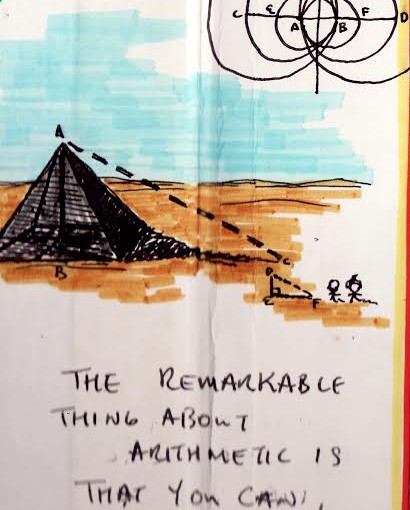 C E A B F D
A
C
D
B
E F
THE REMARKABLE
THING ABOUT
ARITHMETIC IS
THAT YOU CAN,